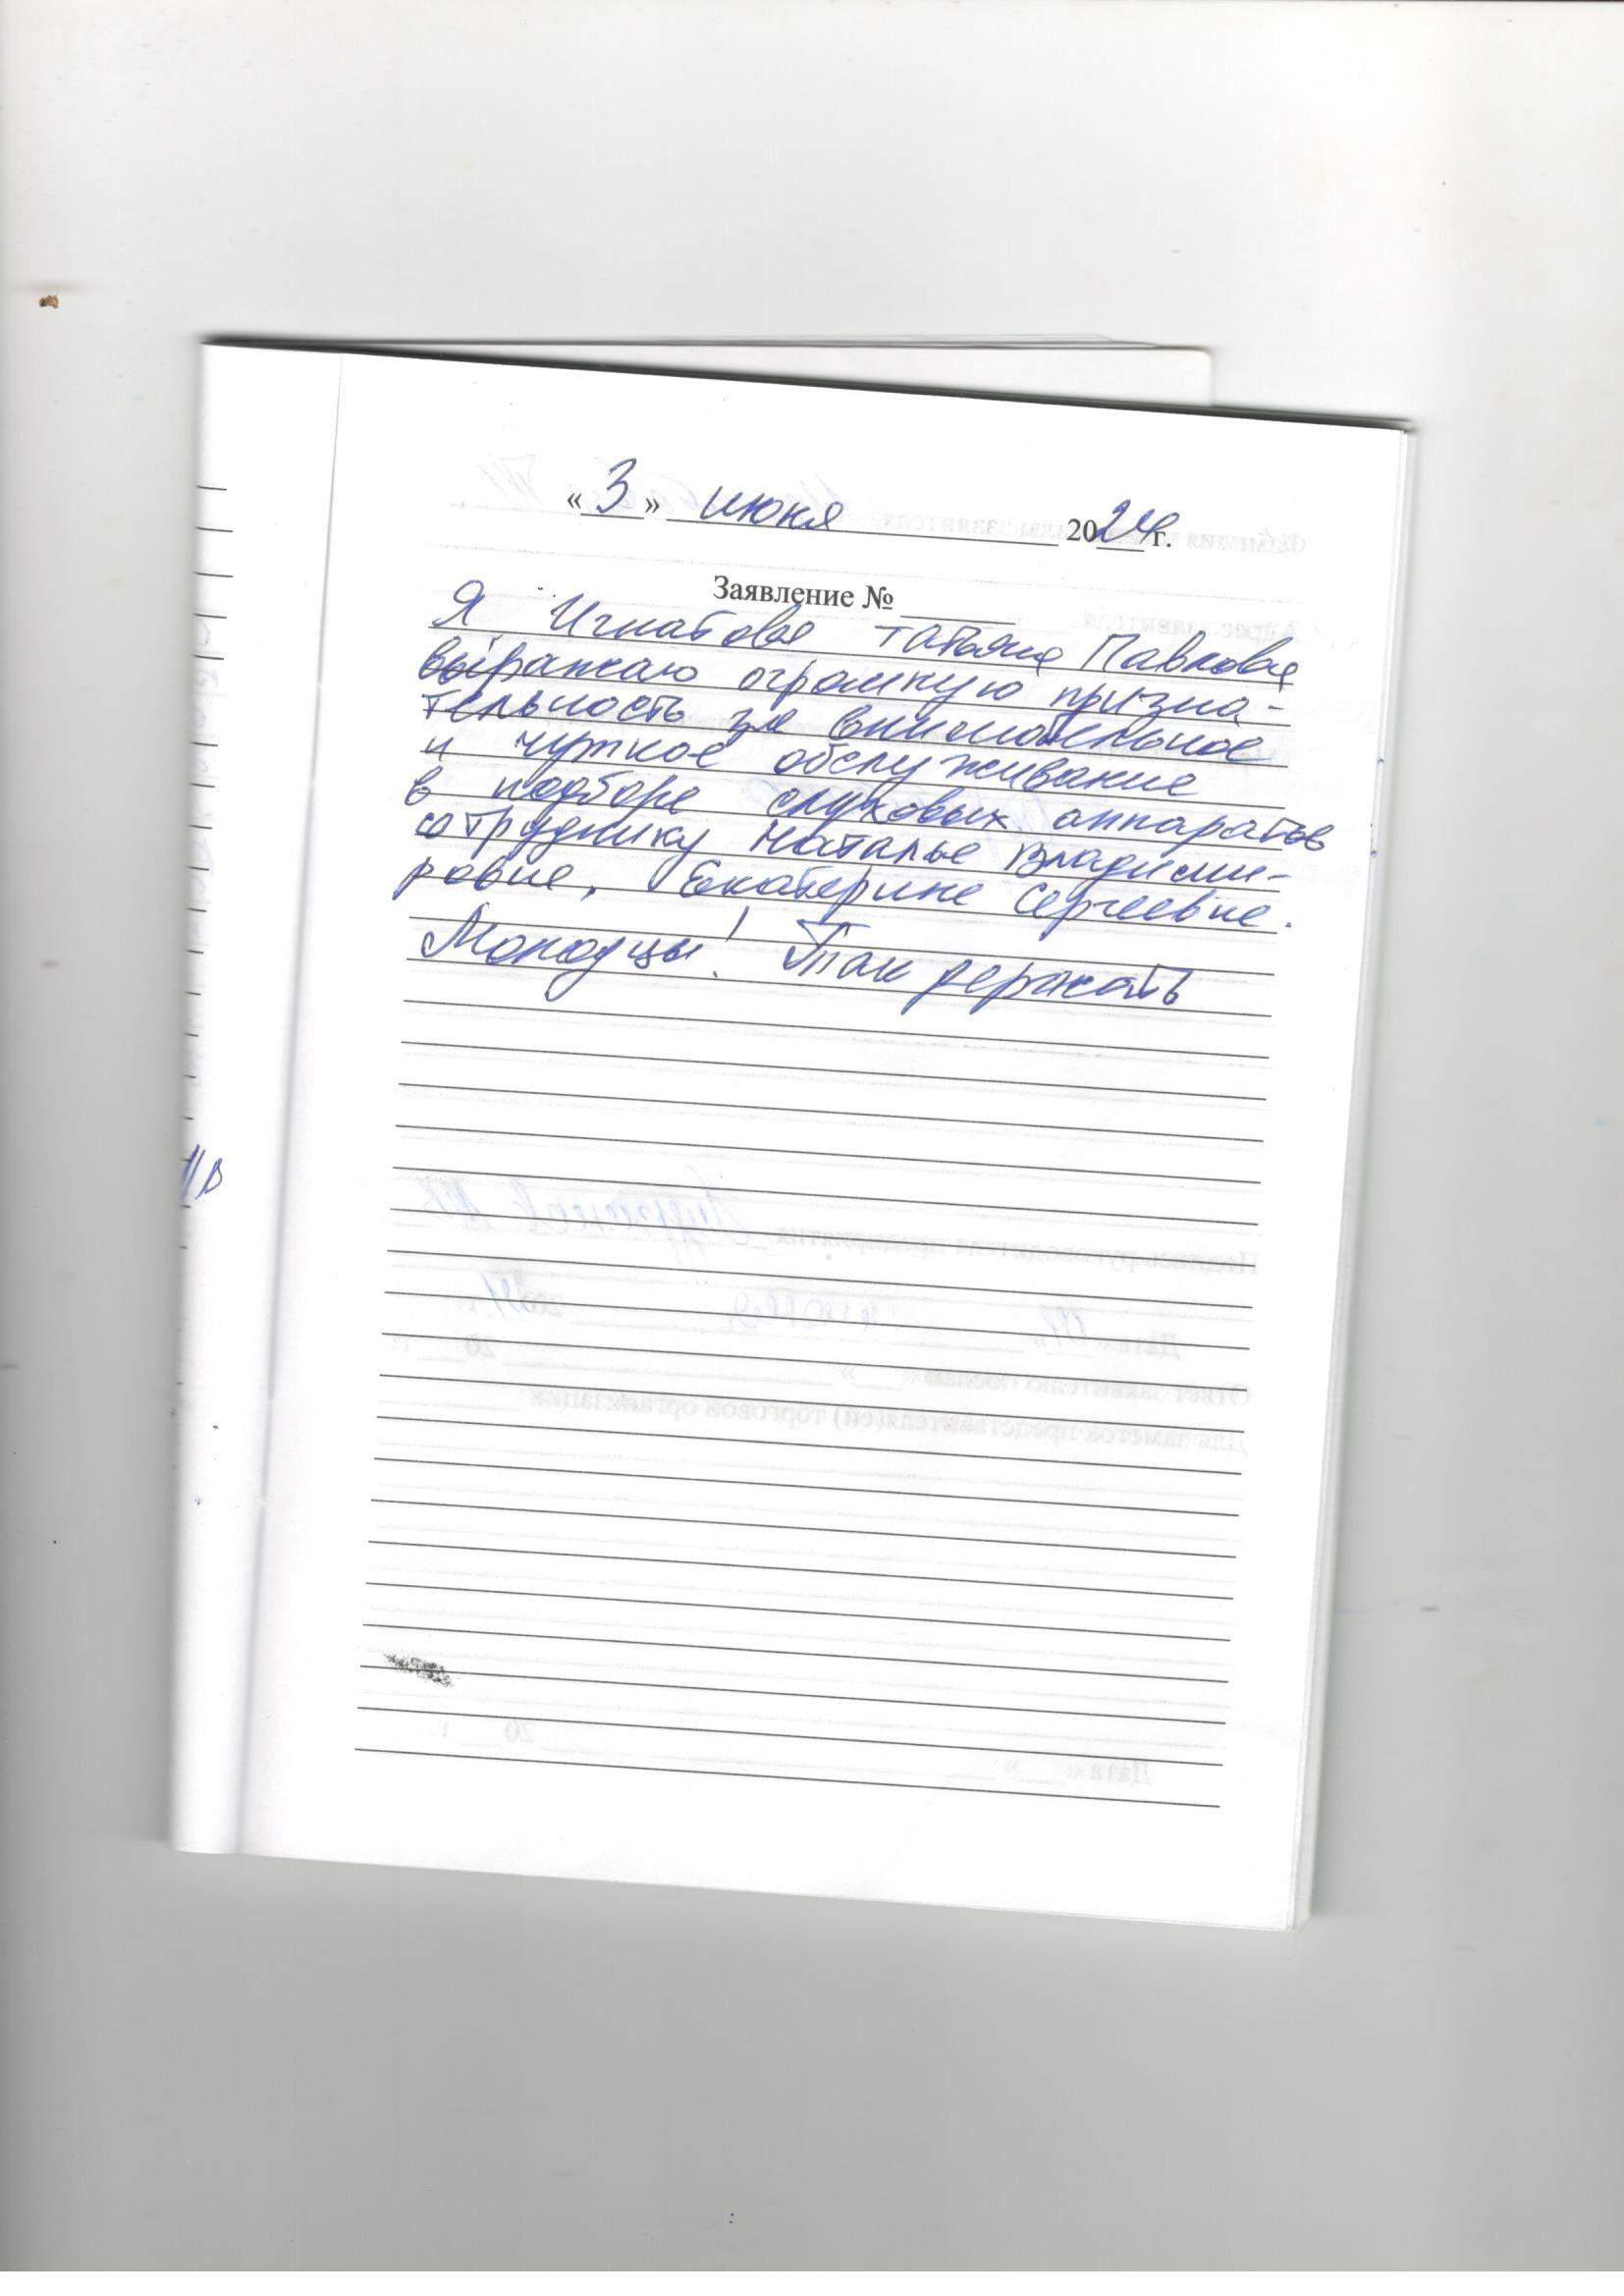 «3» июня 2024 г.
Заявление №
Я Игнатова Татьяна Павловна
выражаю огромную призна-
тельность за внимательное
и чуткое обслуживание
в подборе слуховых аппаратов
сотруднику Наталье Владими-
ровне, Екатерине Сергеевне.
Молодцы! Так держать